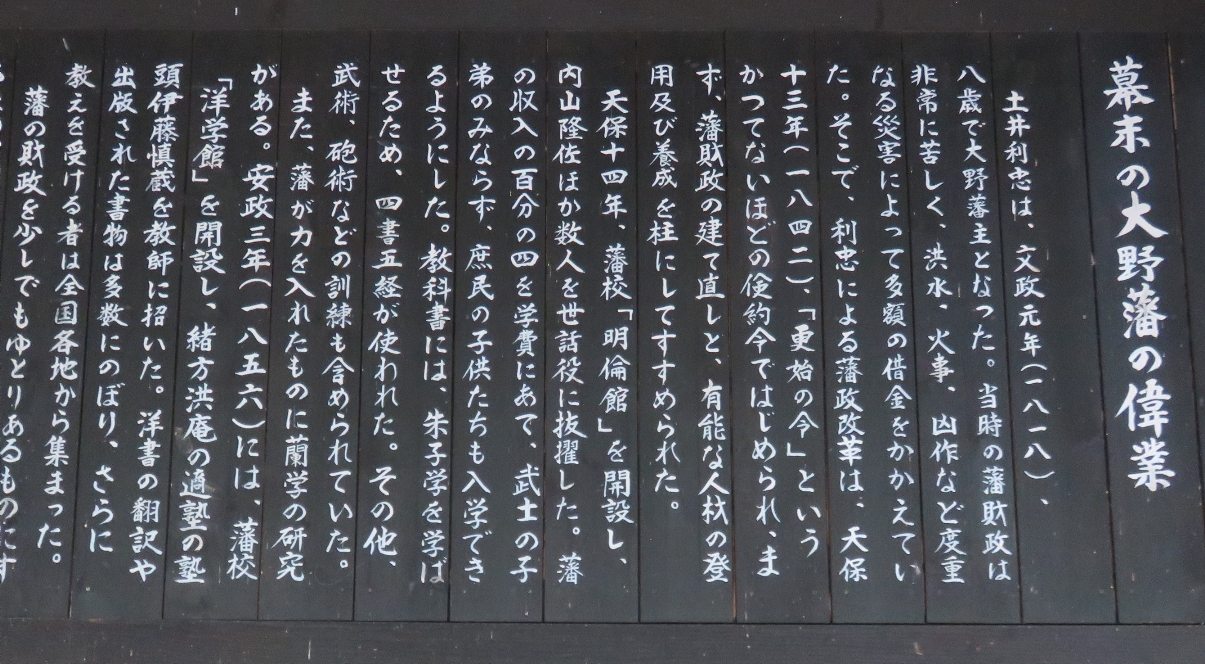 幕末の大野藩の偉業
土井利忠は、文政元年(一八一八)、
八歳で大野藩主となった。当時の藩財政は
非常に苦しく、洪水、火事、凶作など度重
なる災害によって多額の借金をかかえてい
た。そこで、利忠による藩政改革は、天保
十三年(一八四二)、「更始の令」という
かつてないほどの倹約令ではじめられ、ま
ず、藩財政の建て直しと、有能な人材の登
用及び養成を柱にしてすすめられた。
天保十四年、藩校「明倫館」を開設し、
内山隆佐ほか数人を世話役に抜擢した。藩
の収入の百分の四を学費にあて、武士の子
弟のみならず、庶民の子供たちも入学でき
るようにした。教科書には、朱子学を学ば
せるため、四書五経が使われた。その他、
武術、砲術などの訓練も含められていた。
また、藩が力を入れたものに蘭学の研究
がある。安政三年(一八五六)には、藩校
「洋学館」を開設し、緒方洪庵の適塾の塾
頭伊藤慎蔵を教師に招いた。洋書の翻訳や
出版された書物は多数にのぼり、さらに
教えを受ける者は全国各地から集まった。
藩の財政を少しでもゆとりあるものにす